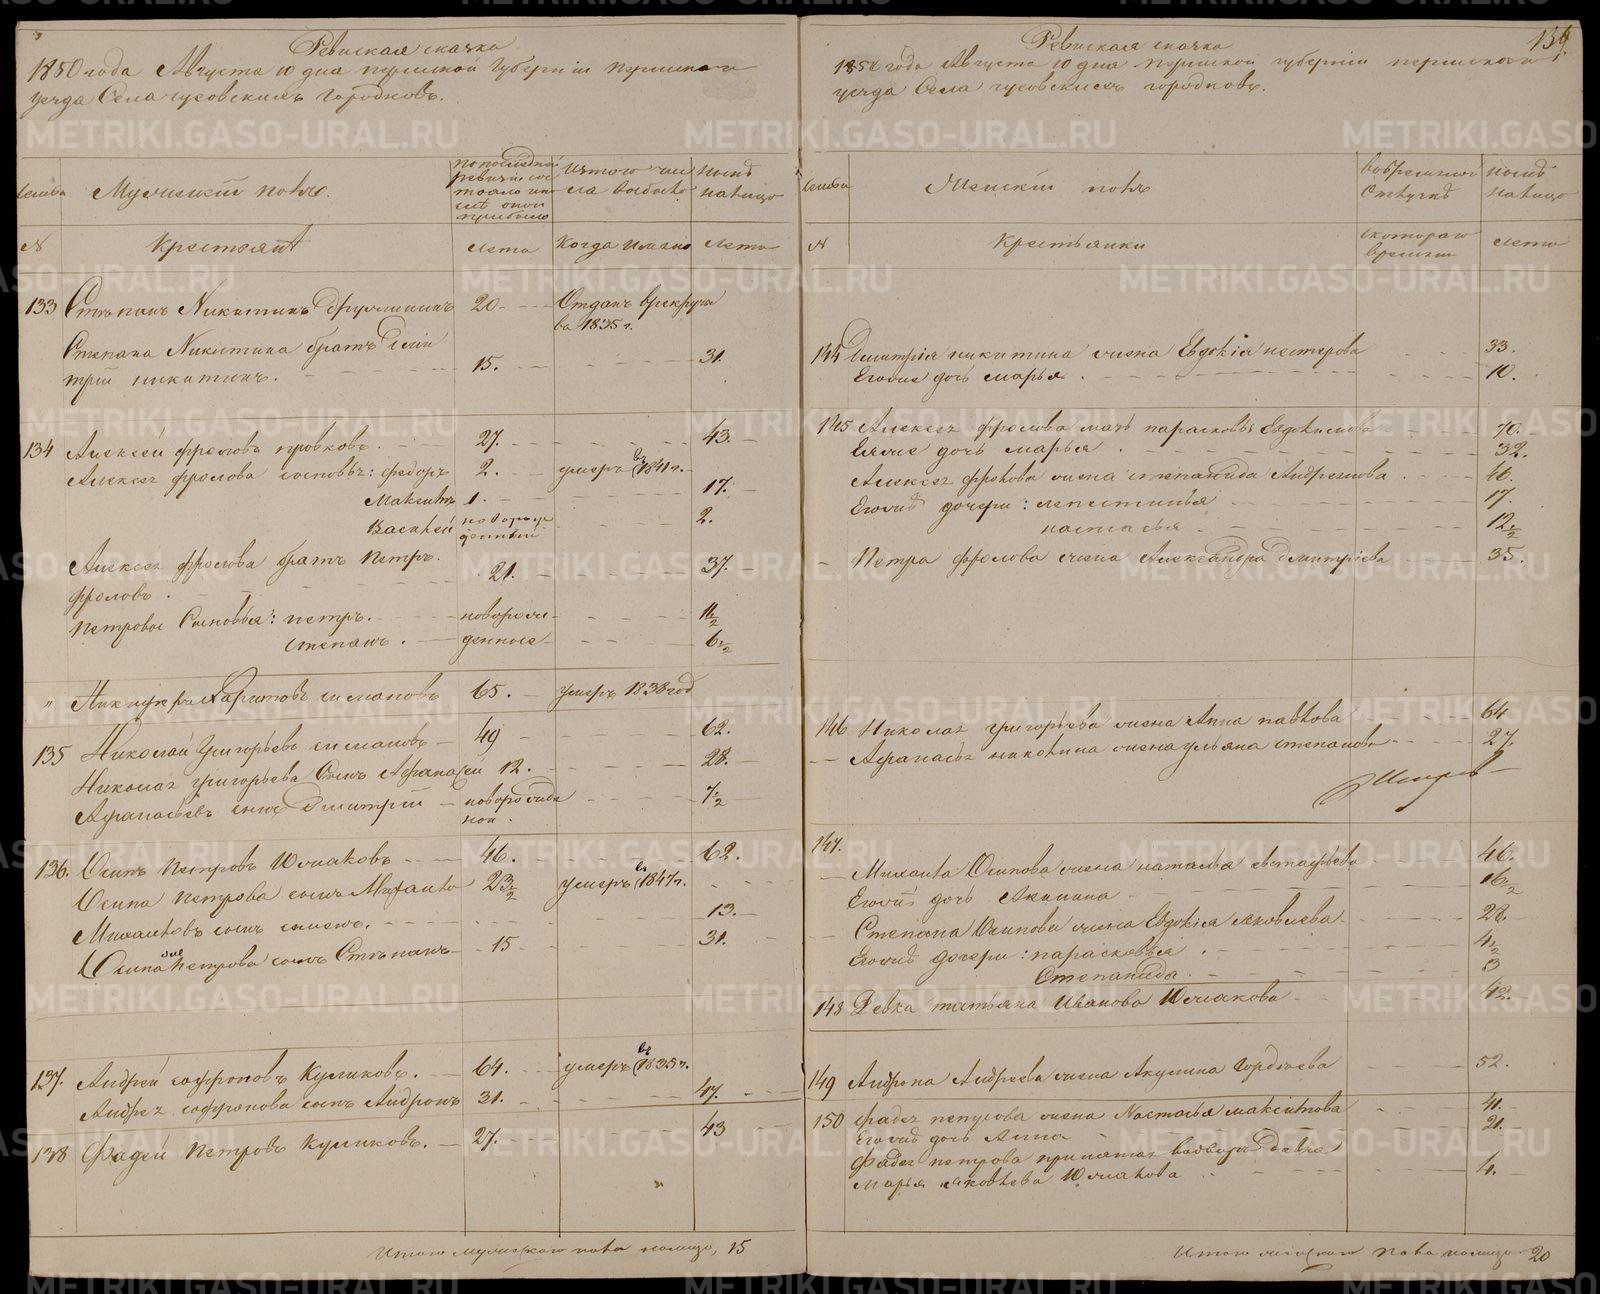 Ревиская сказка
1850 года Августа 10 дня пермской губернии пермскаго
уезда Села чусовскихъ городковъ.
семьи
Мужескій полъ.
по последней
ревизіи сос
тояло и
после оной
прибыло
изъ того чис
ла выбыло
ныне
налицо
№
Крестьянѣ
лета
Когда именно
лета
133 Стѣпанъ Никитинъ
20
Отданъ врекруты
въ 1835 г.
Степана Никитина братъ Дми
трій никитинъ.
15.
31.
134 Алексѣй фроловъ
27.
43.
Алексея фролова сыновья: федоръ
2.
умеръ въ 1841 г.
Максимъ
1.
17.
Василей
новорож
денный
2.
Алексея фролова братъ петръ
фроловъ.
21.
37.
Петровы Сыновья: петръ.
новорож
11 1/2
степанъ.
денные
6 1/2
" Никифоръ Харитоновъ симановъ
65.
умеръ 1838 год
135 Николай Григорьевъ симановъ
49
62.
Николая григорьева Сынъ Афанасей
12.
28.
Афанасьевъ сынъ Дмитрій
новорожде
ной.
7 1/2
136. Осипъ Петровъ Южаковъ
46.
62.
Осипа петрова сынъ Михайло
23 1/2
умеръ въ 1847 г.
Михайловъ сынъ семенъ.
13.
Осипа же Петрова сынъ Стѣпанъ
15
31.
137. Андрей софроновъ Куликовъ.
64.
умеръ въ 1835 г.
Андрея софронова сынъ Андронъ
31.
47.
138 Фадей Петровъ Куликовъ.
27.
43
Итого мужескаго пола налицо, 15
139.
Ревиская сказка
1850 года Августа 10 дня пермской губернии пермскаго
уезда Села чусовскихъ городковъ.
семьи
Женскій полъ
вовременной
отлучкѣ
ныне
налицо
№
Крестьянки
скотораго
времени
лета
144 Дмитрія никитина жена Евдокія нестерова
33.
Егоже дочь марья.
10.
145 Алексея фролова мать парасковья Евдокимова
70.
Еяже дочь марья
32.
Алексея фролова жена степанида Андреянова
41.
Еговы дочери:
17.
настасья
12 1/2
Петра фролова жена Александра дмитріева
35.
146 Николая григорьева жена Анна павлова
64
Афанасья николина жена ульяна степанова
27.
147.
Михаила Осипова жена наталья евстафьева
46.
Еговы дочь Акилина
16 1/2
Степана Осипова жена Евдокія яковлева
28.
Еговы дочери: парасковья
4 1/2
Степанида.
3
148 Девка татьяна Иванова Южакова
42.
149 Андрона Андреева жена Акулина Гордѣева
52.
150 фадея петрова жена Настасья максимова
41.
Еговы дочь Анна
21.
фадея петрова принятая девка
марья яковлева Южакова
4.
Итого женскаго пола налицо 20
METRIKI.GASO-URAL.RU